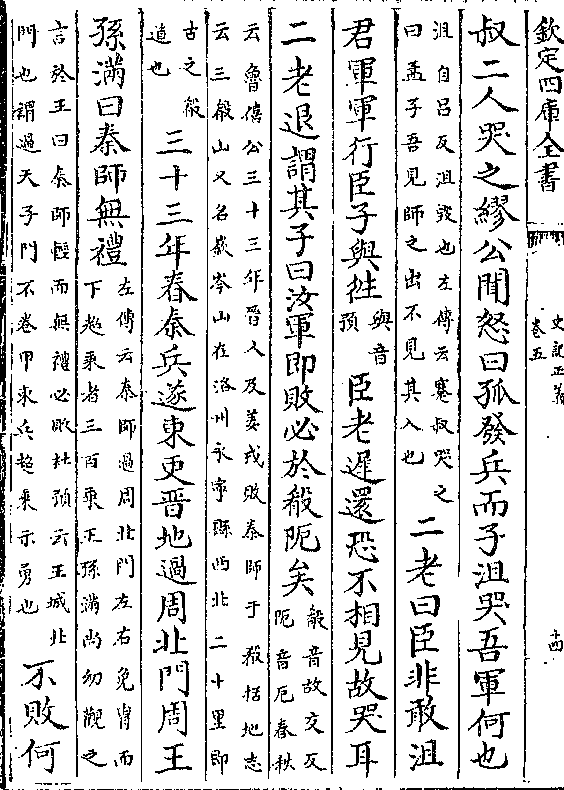 欽定四庫全書
史記正義
卷五
十四
叔二人哭之繆公聞怒曰孤發兵而子沮哭吾軍何也
沮自呂反沮毀也左傳云蹇叔哭之
曰孟子吾見師之出不見其入也
二老曰臣非敢沮
君軍軍行臣子與徃
與音
預
臣老遲還恐不相見故哭耳
二老退謂其子曰汝軍即敗必於殽阨矣
殽音故交反
阨音厄春秋
云魯僖公三十三年晉人及姜戎敗秦師于殽括地志
云三殽山又名嶔岑山在洛州永寧縣西北二十里即
古之殽
道也
三十三年春秦兵遂東更晉地過周北門周王
孫滿曰秦師無禮
左傳云秦師過周北門左右免胄而
下超乘者三百乘王孫滿尚幼觀之
言於王曰秦師輕而無禮必敗杜預云王城北
門也謂過天子門不卷甲束兵超乘示勇也
不敗何